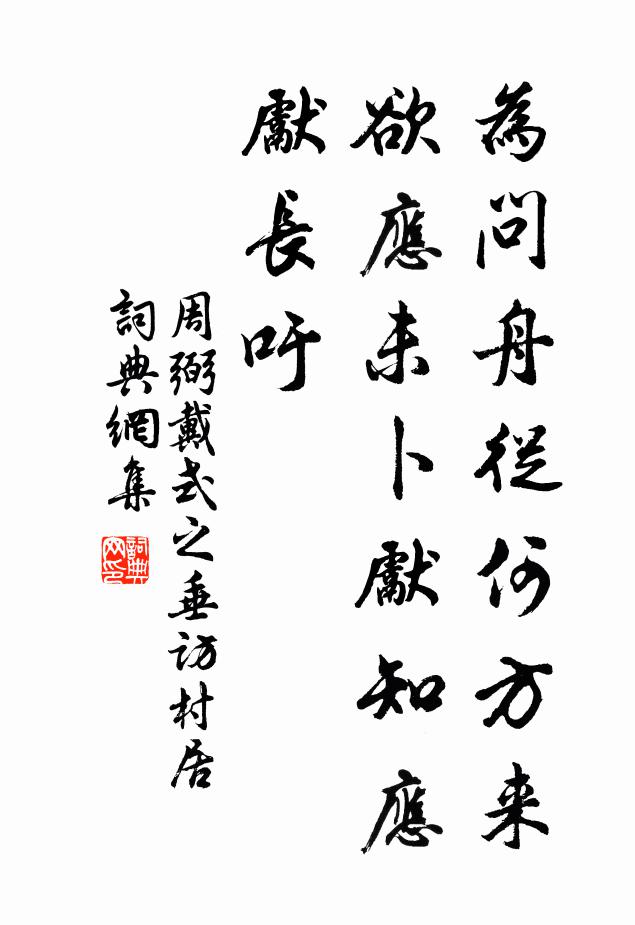 為問舟從何方来
欲應未卜獻知應
獻長吁
周弼戴式之垂訪村居
詞典網集
詞典網印